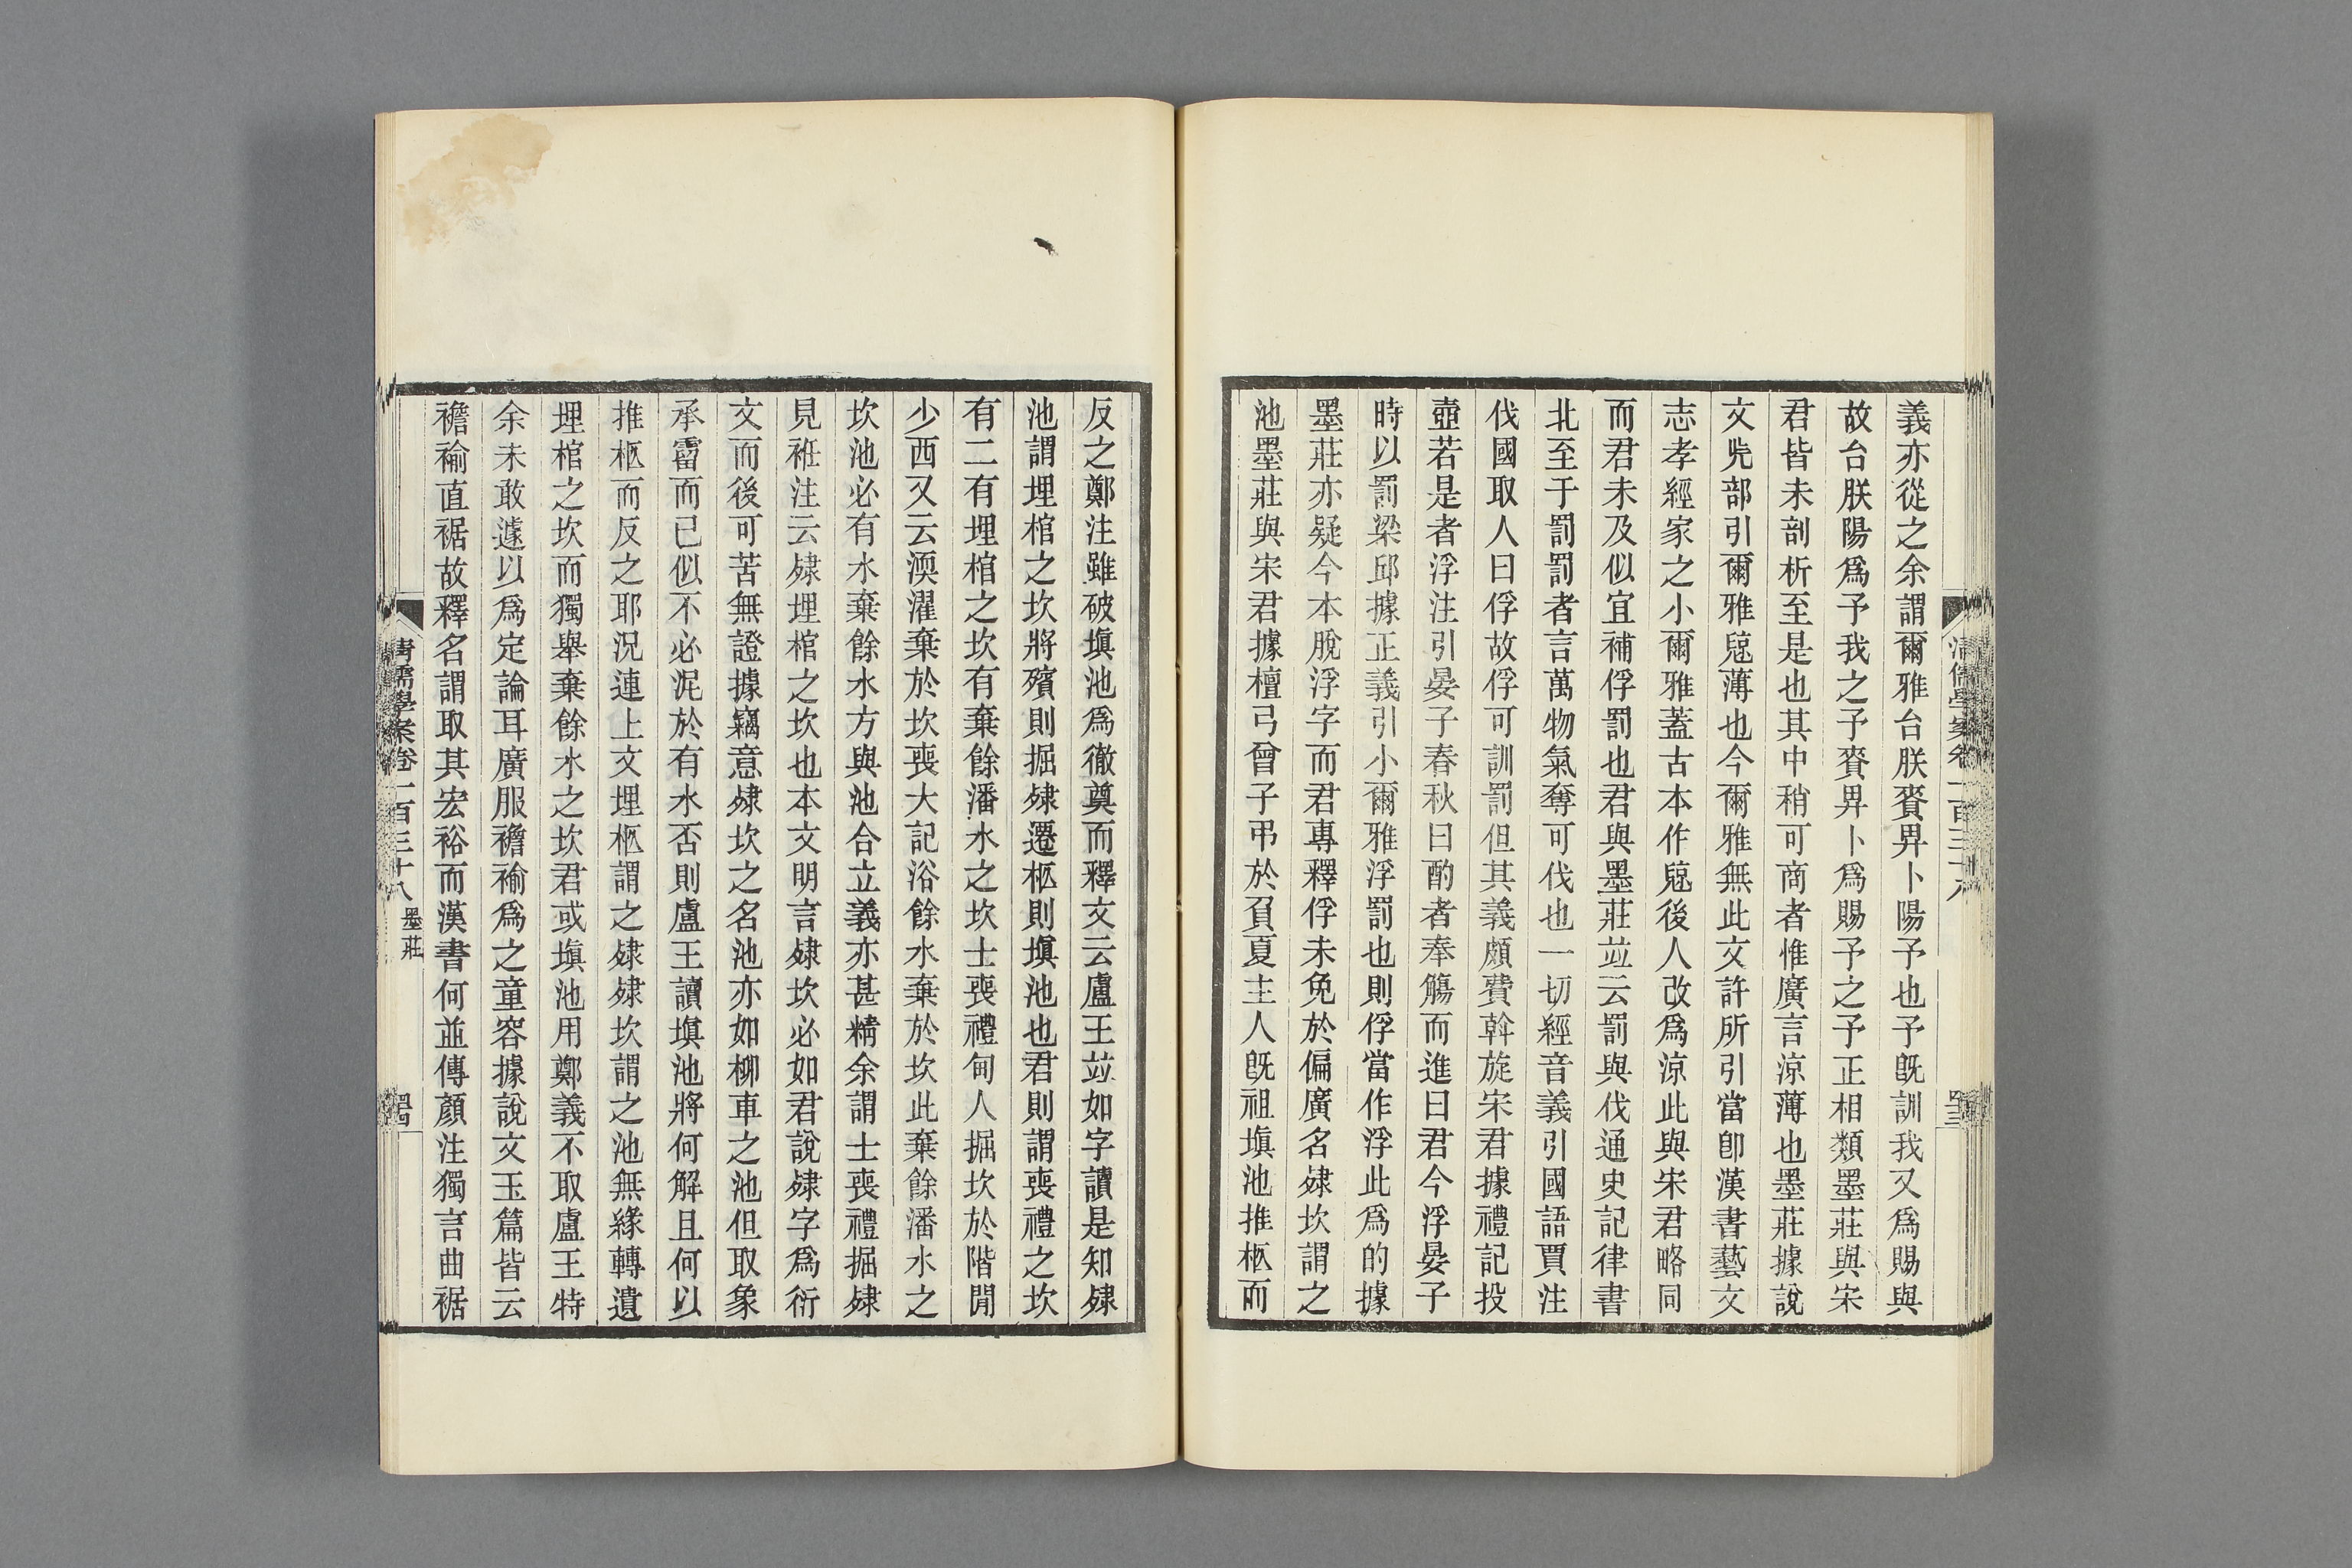 義亦從之余謂爾雅台朕賚畀卜陽予也予既訓我又爲賜與
故台朕陽爲予我之予賚畀卜爲賜予之予正相類墨莊與宋
君皆未剖析至是也其中稍可商者惟廣言涼薄也墨莊據說
文旡部引爾雅㹁薄也今爾雅無此文許所引當卽漢書藝文
志孝經家之小爾雅蓋古本作㹁後人改爲涼此與宋君略同
而君未及似宜補俘罰也君與墨莊竝云罰與伐通史記律書
北至于罰罰者言萬物氣奪可伐也一切經音義引國語賈注
伐國取人曰俘故俘可訓罰但其義頗費斡旋宋君據禮記投
壺若是者浮注引晏子春秋曰酌者奉觴而進曰君令浮晏子
時以罰梁邱據正義引小爾雅浮罰也則俘當作浮此爲的據
墨莊亦疑今本脫浮字而君專釋俘未免於偏廣名肂坎謂之
池墨莊與宋君據檀弓曾子弔於負夏主人既祖塡池推柩而
反之鄭注雖破塡池爲徹奠而釋文云盧王竝如字讀是知肂
池謂埋棺之坎將殯則掘肂遷柩則塡池也君則謂喪禮之坎
有二有埋棺之坎有棄餘潘水之坎士喪禮甸人掘坎於階閒
少西又云渜濯棄於坎喪大記浴餘水棄於坎此棄餘潘水之
坎池必有水棄餘水方與池合立義亦甚精余謂士喪禮掘肂
見衽注云肂埋棺之坎也本文明言肂坎必如君說肂字爲衍
文而後可苦無證據竊意肂坎之名池亦如柳車之池但取象
承霤而已似不必泥於有水否則盧王讀塡池將何解且何以
推柩而反之耶況連上文埋柩謂之肂肂坎謂之池無緣轉遺
埋棺之坎而獨舉棄餘水之坎君或塡池用鄭義不取盧王特
余未敢遽以爲定論耳廣服襜褕爲之童容據說文玉篇皆云
襜褕直裾故釋名謂取其宏裕而漢書何並傳顏注獨言曲裾
清儒學案卷一百三十八 墨莊